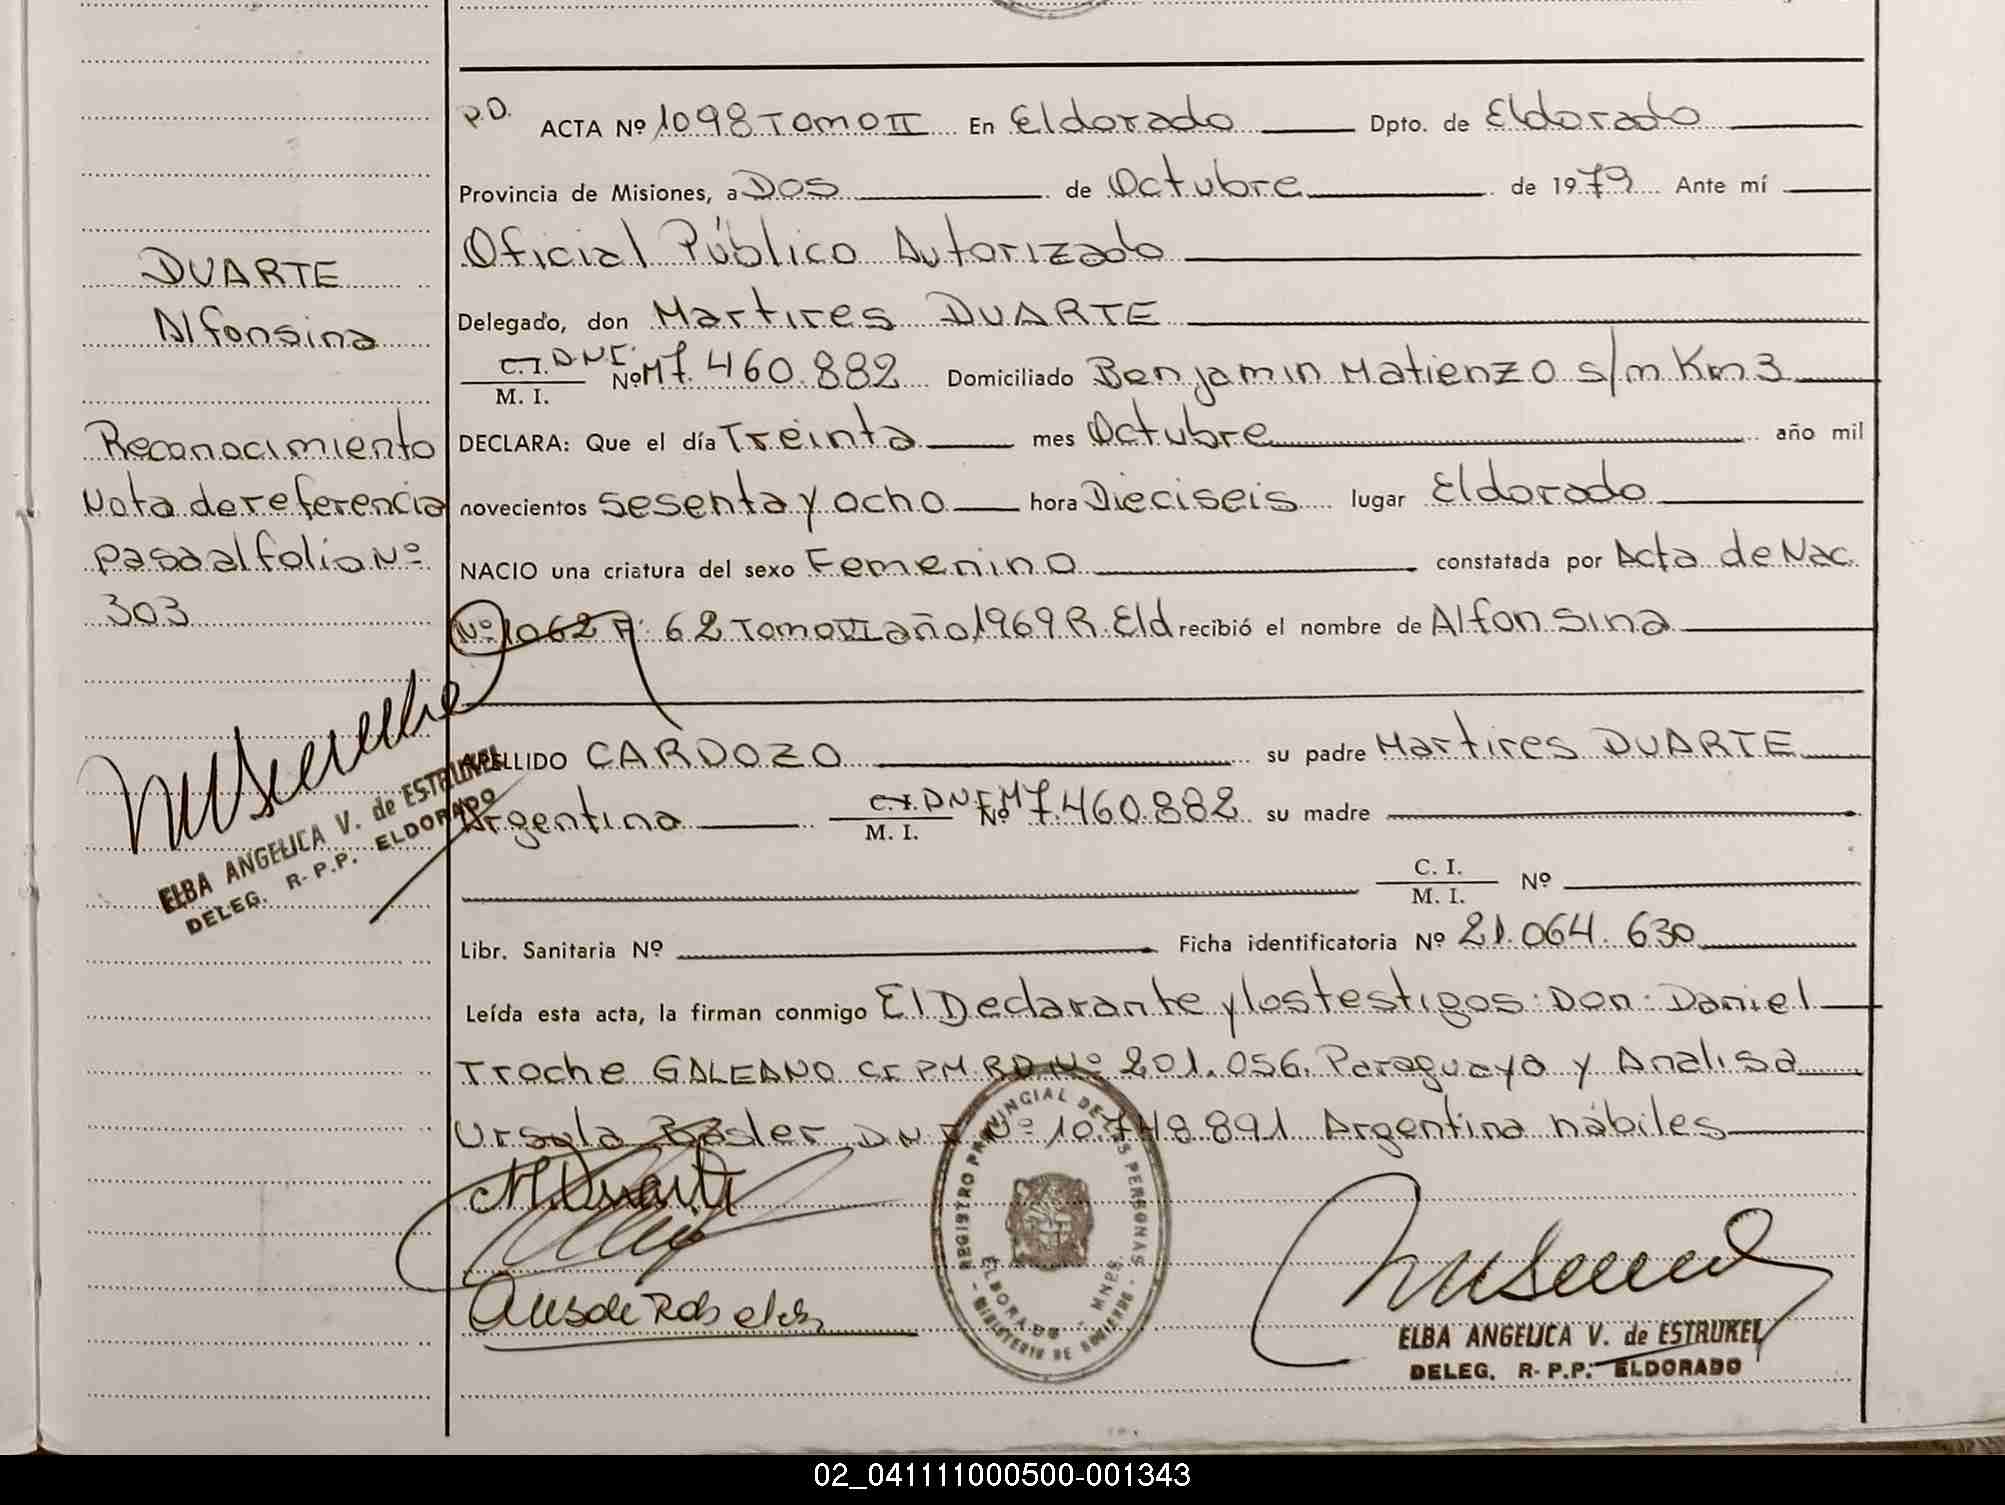 P.D. ACTA Nº 1098 Tomo II En Eldorado Dpto. de Eldorado
Provincia de Misiones, a Dos de Octubre de 1979 Ante mí
Oficial Público Autorizado
Delegado, don Martires DUARTE
C.I. DNI. M. I. Nº M7.460.882 Domiciliado Benjamin Matienzo s/m Km 3
DECLARA: Que el día Treinta mes Octubre año mil
novecientos sesenta y ocho hora Dieciseis lugar Eldorado
NACIO una criatura del sexo Femenino constatada por Acta de Nac.
Nº 1062 Fº 62 Tomo VI año 1969 R. Eld recibió el nombre de Alfonsina
APELLIDO CARDOZO su padre Martires DUARTE
Argentina C.I. DNI M. I. Nº M7.460.882 su madre
C. I. M. I. Nº
Libr. Sanitaria Nº Ficha identificatoria Nº 21.064.630
Leída esta acta, la firman conmigo El Declarante y los testigos: Don: Daniel
Troche GALEANO CI PM RD Nº 201.056. Paraguayo y Analisa
Ursula DNI Nº 10.748.891 Argentina hábiles
DUARTE
Alfonsina
Reconocimiento
Nota de referencia
pasa al folio Nº
303
ELBA ANGELICA V. de ESTRUKEL
DELEG. R-P.P. ELDORADO
M. Duarte
REGISTRO PROVINCIAL DE LAS PERSONAS
ELDORADO - MNES.
MINISTERIO DE GOBIERNO
ELBA ANGELICA V. de ESTRUKEL
DELEG. R-P.P. ELDORADO
02_041111000500-001343